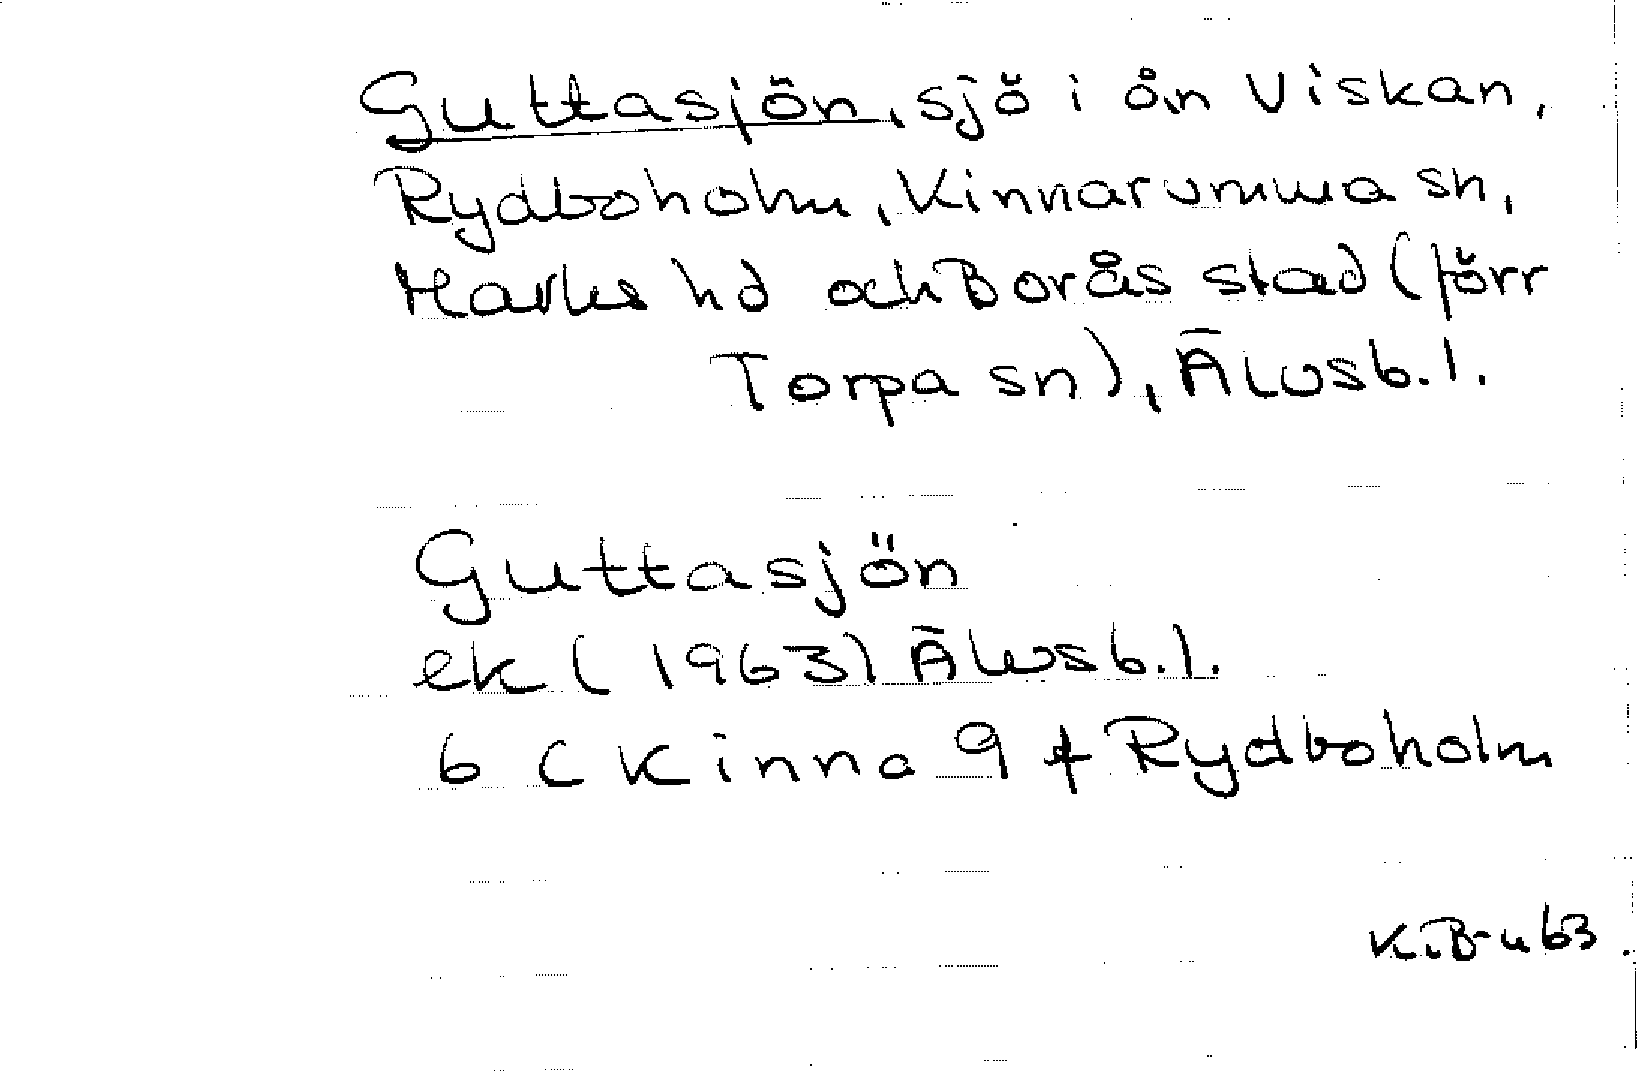 Guttasjön, sjö i ån Viskan,
Rydboholm, Kinnarumma sn,
Marks hd och Borås stad (förr
Torpa sn), Älvsb.l.
Guttasjön
ek (1963) Älvsb.l.
6 C Kinna 9 f Rydboholm